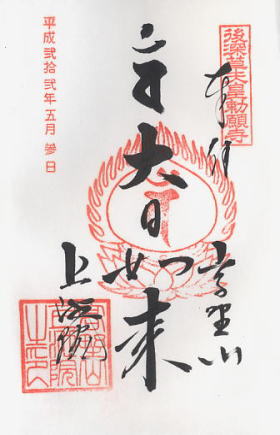 後深草天皇勅願寺
奉拝
高野山
大日如来
上池院
平成弐拾弐年五月参日